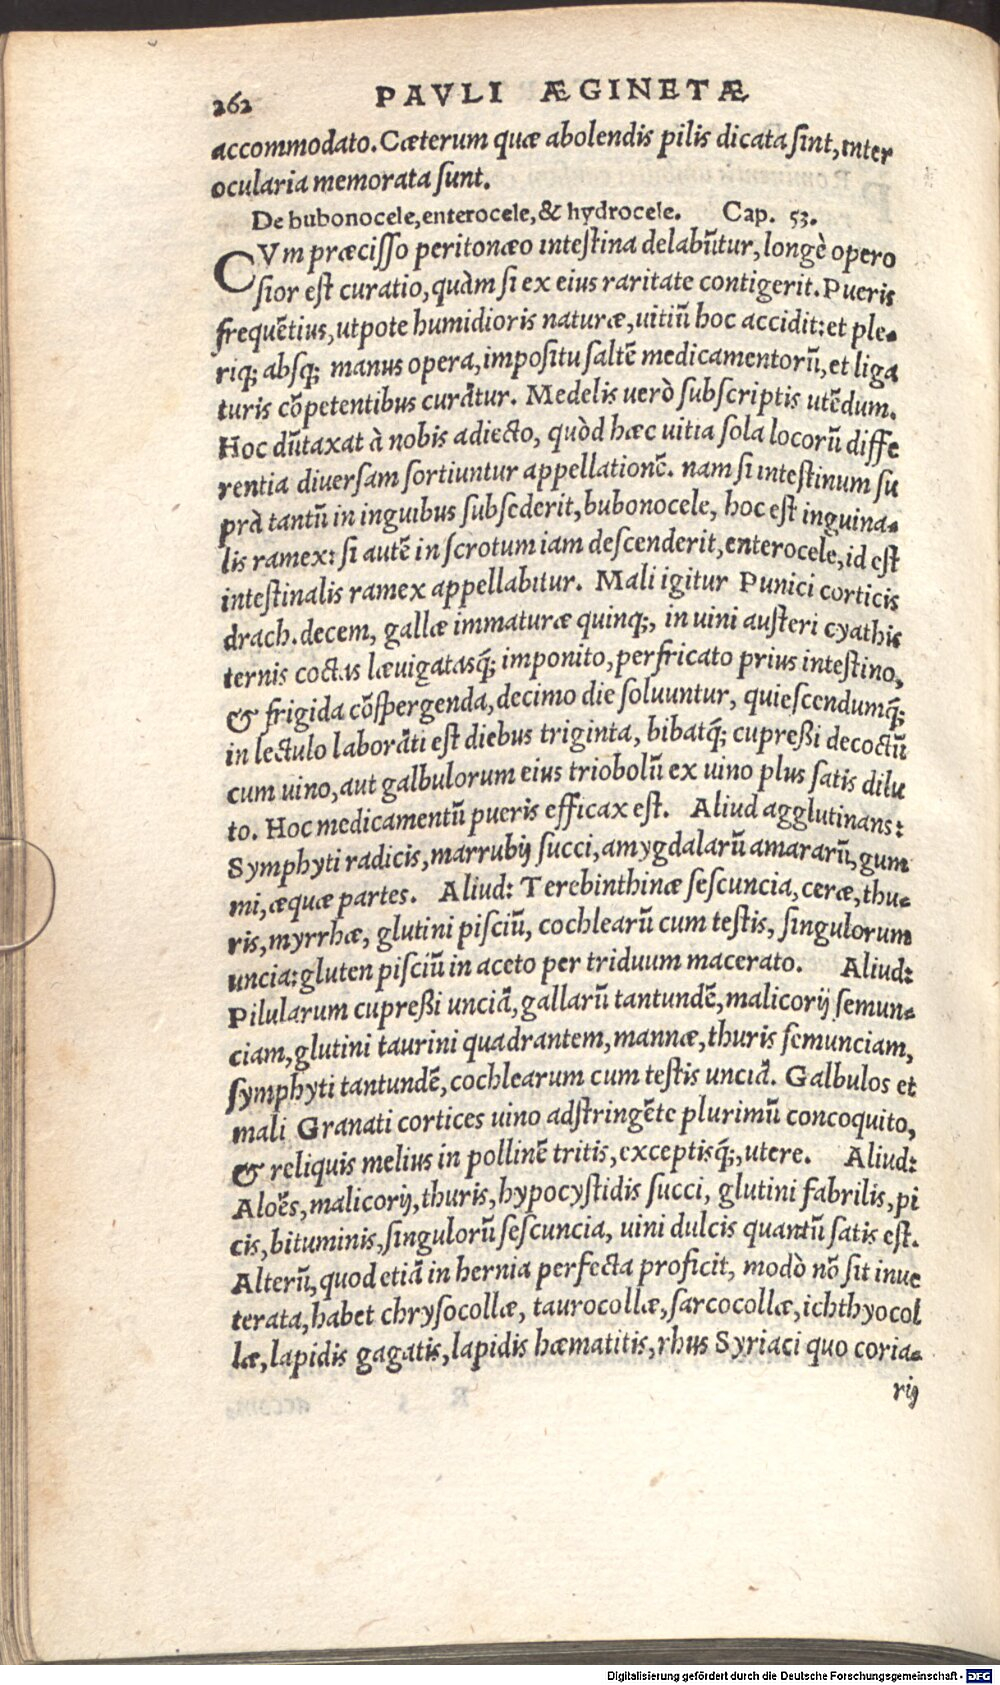 262 PAVLI ÆGINETÆ
accommodato. Cæterum quæ abolendis pilis dicata sint, inter
ocularia memorata sunt.
De bubonocele, enterocele, & hydrocele. Cap. 53.
CVm præcisso peritonæo intestina delabũtur, longè opero
sior est curatio, quàm si ex eius raritate contigerit. Pueris
frequẽtius, utpote humidioris naturæ, uitiũ hoc accidit: et ple-
riq; absq; manus opera, impositu saltẽ medicamentorũ, et liga
turis cõpetentibus curãtur. Medelis uerò subscriptis utẽdum.
Hoc dũtaxat à nobis adiecto, quòd hæc uitia sola locorũ diffe
rentia diuersam sortiuntur appellationẽ. nam si intestinum su
prà tantũ in inguibus subsederit, bubonocele, hoc est inguina-
lis ramex: si autẽ in scrotum iam descenderit, enterocele, id est
intestinalis ramex appellabitur. Mali igitur Punici corticis
drach. decem, gallæ immaturæ quinq;, in uini austeri cyathis
ternis coctas læuigatasq́; imponito, perfricato prius intestino,
& frigida cõspergenda, decimo die soluuntur, quiescendumq́;
in lectulo laborãti est diebus triginta, bibatq́; cupreßi decoctũ
cum uino, aut galbulorum eius triobolũ ex uino plus satis dilu
to. Hoc medicamentũ pueris efficax est. Aliud agglutinans:
Symphyti radicis, marrubij succi, amygdalarũ amararũ, gum
mi, æquæ partes. Aliud: Terebinthinæ sescuncia, ceræ, thu-
ris, myrrhæ, glutini pisciũ, cochlearũ cum testis, singulorum
uncia: gluten pisciũ in aceto per triduum macerato. Aliud:
Pilularum cupreßi unciã, gallarũ tantundẽ, malicorij semun-
ciam, glutini taurini quadrantem, mannæ, thuris semunciam,
symphyti tantundẽ, cochlearum cum testis unciã. Galbulos et
mali Granati cortices uino adstringẽte plurimũ concoquito,
& reliquis melius in pollinẽ tritis, exceptisq́;, utere. Aliud:
Aloẽs, malicorij, thuris, hypocystidis succi, glutini fabrilis, pi
cis, bituminis, singulorũ sescuncia, uini dulcis quantũ satis est.
Alterũ, quod etiã in hernia perfecta proficit, modò nõ sit inue
terata, habet chrysocollæ, taurocollæ, sarcocollæ, ichthyocol
læ, lapidis gagatis, lapidis hæmatitis, rhus Syriaci quo coria-
rij
Digitalisierung gefördert durch die Deutsche Forschungsgemeinschaft - DFG